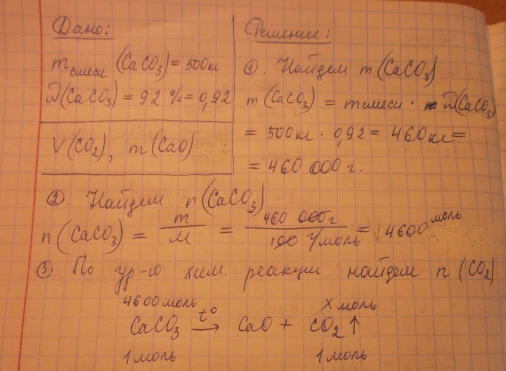 Дано:
m смеси (CaCO₃) = 500 кг
ω(CaCO₃) = 92 % = 0,92
V(CO₂), m(CaO)
Решение:
①. Найдем m(CaCO₃)
m(CaCO₃) = m смеси · ω(CaCO₃)
= 500 кг · 0,92 = 460 кг =
= 460 000 г.
②. Найдем n(CaCO₃)
n(CaCO₃) = m/M = 460 000 г / 100 г/моль = 4600 моль
③ По ур-ю хим. реакции найдем n(CO₂)
4600 моль x моль
CaCO₃ t° → CaO + CO₂ ↑
1 моль 1 моль